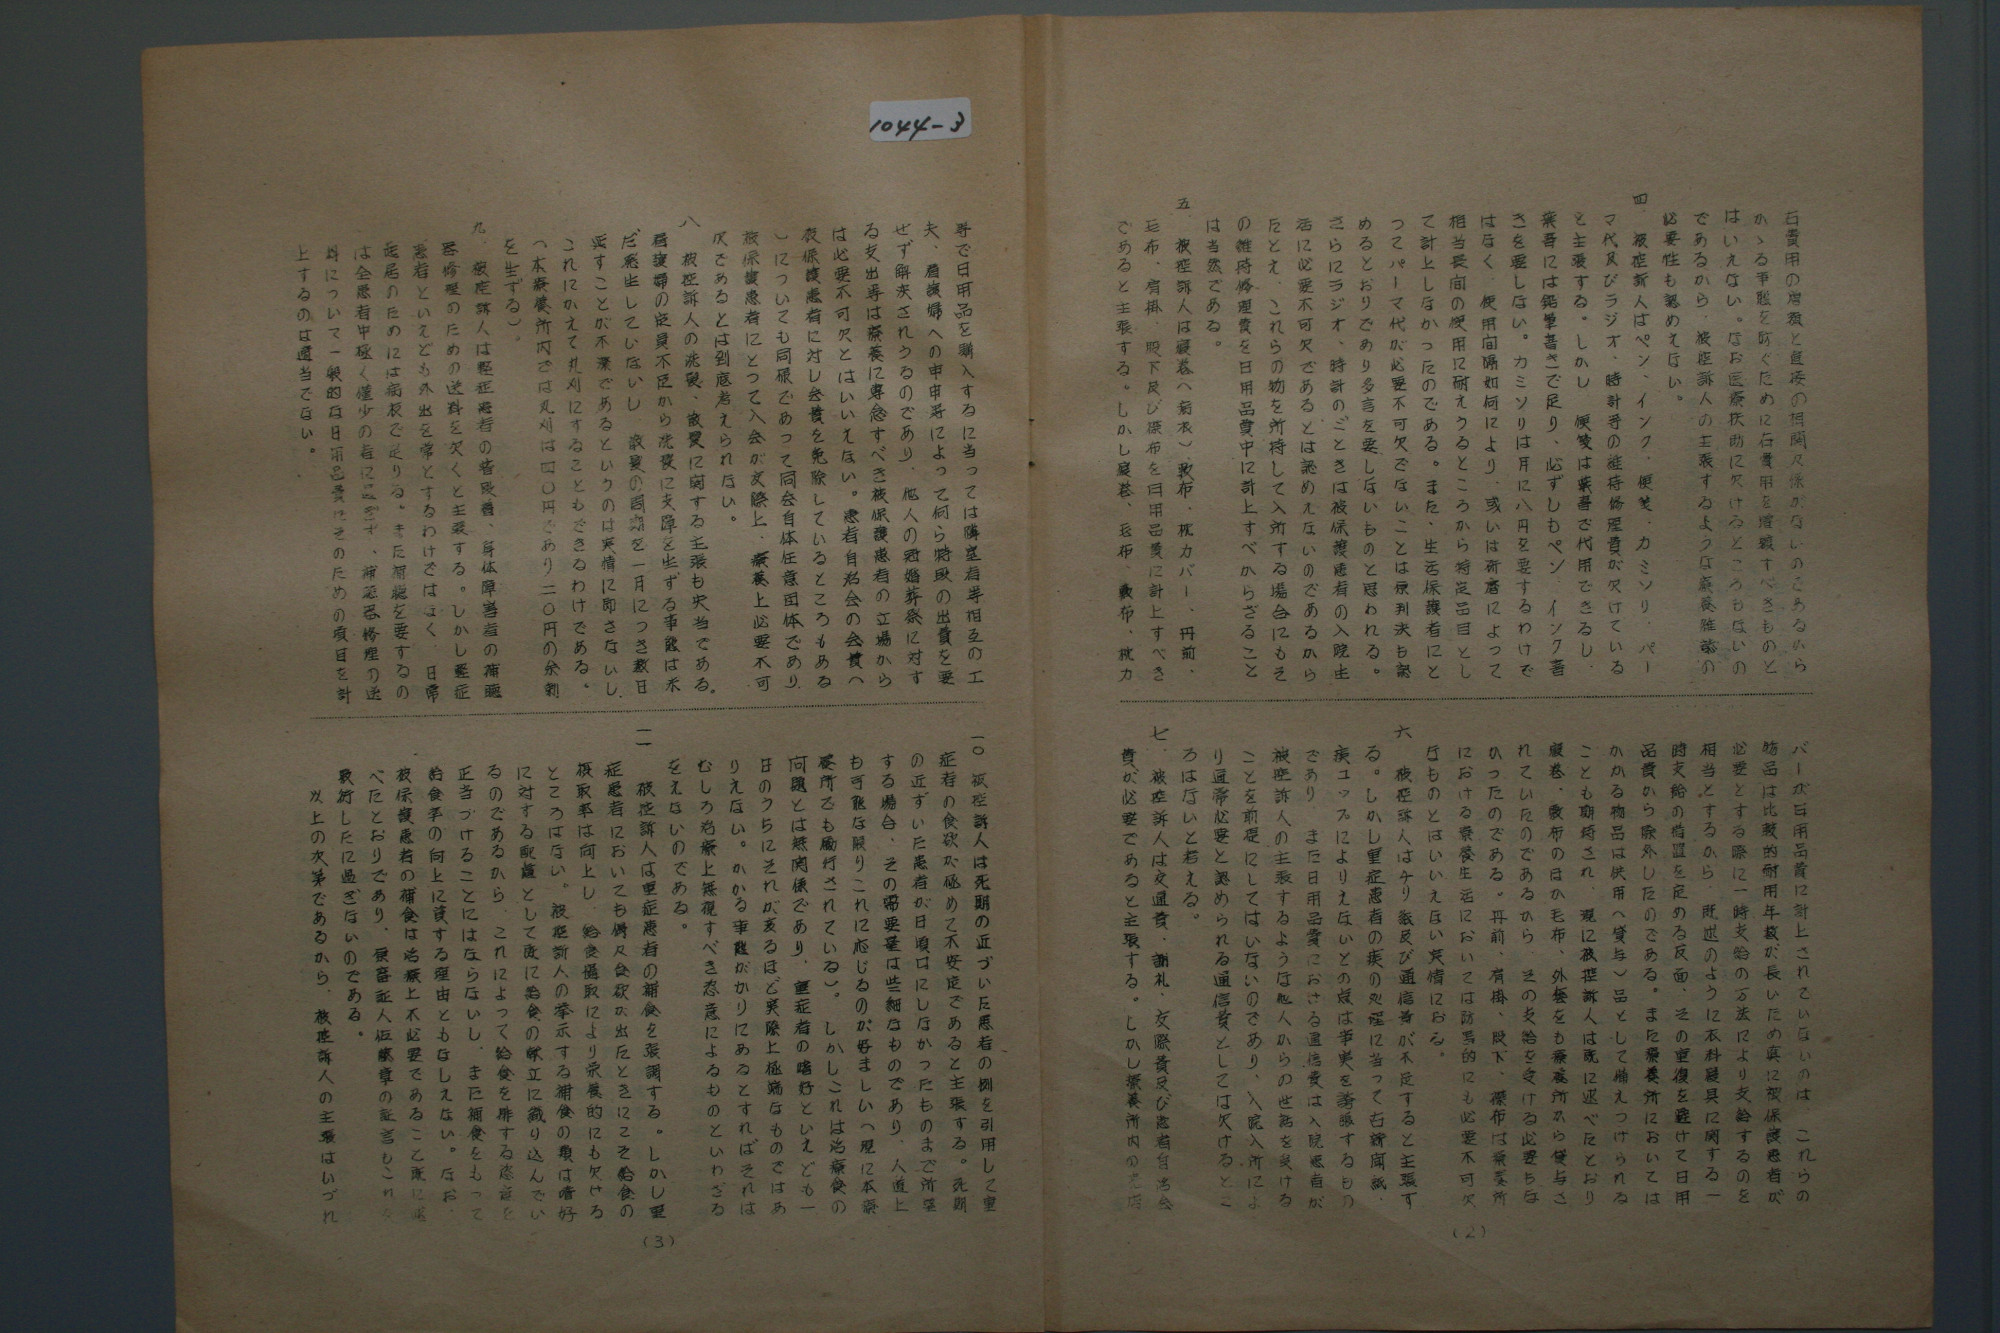 1044-3
右費用の増額と直接の相関々係がないのであるから
かゝる事態を防ぐために右費用を増額すべきものと
はいえない。なお医療扶助に欠けるところもないの
であるから、被控訴人の主張するような療養雑誌の
必要性も認めえない。
四、被控訴人はペン、インク、便箋、カミソリ、パー
マ代及びラジオ、時計等の維持修理費が欠けている
と主張する。しかし、便箋は葉書で代用できるし、
葉書には鉛筆書きで足り、必ずしもペン、インク書
きを要しない。カミソリは月に八円を要するわけで
はなく、使用間隔如何により、或いは研磨によって
相当長間の使用に耐えうるところから特定品目とし
て計上しなかったのである。また、生活保護者にと
ってパーマ代が必要不可欠でないことは原判決も認
めるとおりであり多言を要しないものと思われる。
さらにラジオ、時計のごときは被保護患者の入院生
活に必要不可欠であるとは認めえないのであるから
たとえ、これらの物を所持して入所する場合にもそ
の維持修理費を日用品費中に計上すべからざること
は当然である。
五、被控訴人は寝巻(病衣)、敷布、枕カバー、丹前、
毛布、肩掛、股下及び漂布を日用品費に計上すべき
であると主張する。しかし寝巻、毛布、敷布、枕カ
バーが日用品費に計上されていないのは、これらの
物品は比較的耐用年数が長いため真に被保護患者が
必要とする際に一時支給の方法により支給するのを
相当とするから、既述のように衣料寝具に関する一
時支給の措置を定める反面、その重復を避けて日用
品費から除外したのである。また療養所においては
かかる物品は供用(貸与)品として備えつけられる
ことも期待され、現に被控訴人は既に述べたとおり
寝巻、敷布のほか毛布、外套をも療養所から貸与さ
れていたのであるから、その支給を受ける必要もな
かったのである。丹前、肩掛、股下、漂布は療養所
における療養生活においては訪客的にも必要不可欠
なものとはいいえない実情にある。
六、被控訴人はチリ紙及び通信費が不足すると主張す
る。しかし重症患者の痰の処理に当って右新聞紙、
痰コップによりえないとの点は事実を誇張するもの
であり、また日用品費における通信費は入院患者が
被控訴人の主張するような他人からの世話を受ける
ことを前提にしてはいないのであり、入院入所によ
り通常必要と認められる通信費としては欠けるとこ
ろはないと考える。
七、被控訴人は交通費、謝礼、交際費及び患者自治会
費が必要であると主張する。しかし療養所内の売店
等で日用品を購入するに当っては隣室者等相互の工
夫、看護婦への申出等によって何ら特段の出費を要
せず解決されうるのであり、他人の冠婚葬祭に対す
る支出等は療養に専念すべき被保護患者の立場から
は必要不可欠とはいいえない。患者自治会の会費(
被保護患者に対し会費を免除しているところもある
)についても同様であって同会自体任意団体であり
被保護患者にとって入会が交際上、療養上必要不可
欠であるとは到底考えられない。
八、被控訴人の洗髪、散髪に関する主張も失当である。
看護婦の定員不足から洗髪に支障を生ずる事態は未
だ発生していないし、散髪の同期を一月につき数日
ずらすことが不潔であるというのは実情に即さないし
これにかえて丸刈にすることもできるわけである、
(本療養所内では丸刈は四〇円であり二〇円の余剰
を生ずる)。
九、被控訴人は軽症患者の普段着、身体障害者の補聴
器修理のための送料を欠くと主張する。しかし軽症
患者といえども外出を常とするわけではなく、日常
起居のためには病衣で足りる。また補聴を要するの
は全患者中極く僅少の者に過ぎず、補聴器修理の送
料について一般的な日用品費にそのための項目を計
上するのは適当でない。
一〇、被控訴人は死期の近づいた患者の例を引用して重
症者の食欲が極めて不安定であると主張する。死期
の近ずいた患者が日頃口にしなかったものまで所望
する場合、その需要量は些細なものであり、人道上
も可能な限りこれに応じるのが好ましい(現に本療
養所でも励行されている)。しかしこれは治療食の
問題とは無関係であり、重症者の嗜好といえども一
日のうちにそれが亥るほど実際上極端なものではあ
りえない。かかる事態がかりにあるとすればそれは
むしろ治療上無視すべき恣意によるものといわざる
をえないのである。
一一、被控訴人は重症患者の補食を強調する。しかし重
症患者においても偶々食欲が出たときにこそ給食の
摂取率は向上し、給食摂取により栄養的にも欠ける
ところはない。被控訴人の挙示する補食の類は嗜好
に対する配慮として既に給食の献立に織り込んでい
るのであるから、これによって給食を排する恣意を
正当づけることにはならないし、また補食をもって
給食率の向上に資する理由ともなしえない。なお、
被保護患者の補食は治療上不必要であること既に述
べたとおりであり、原審証人佐藤章の証言もこれを
敷衍したに過ぎないのである。
以上の次第であるから、被控訴人の主張はいづれ
(2)
(3)